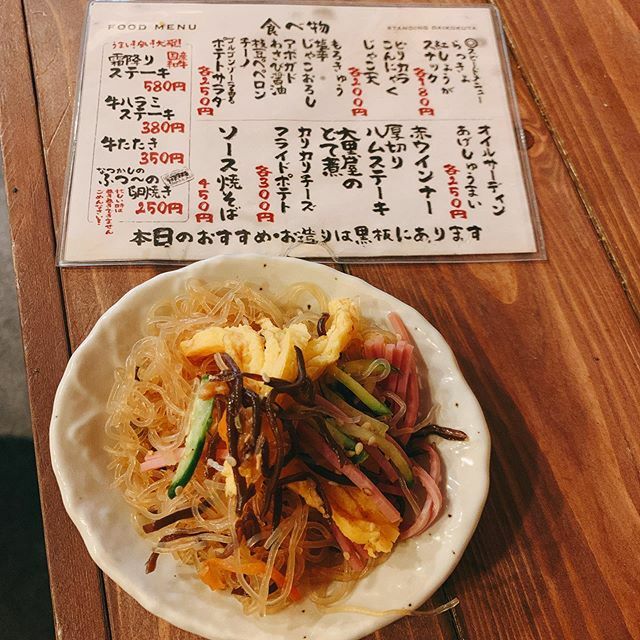 FOOD MENU
食べ物
STANDING DAIKOKUYA
スピードメニュー
らっきょ
紅しょうが
スナック
各180円
ピリカラ
こんにゃく
じゃこ天
各200円
もろきゅう
塩辛
じゃこおろし
アボカド
わさび醤油
枝豆ペペロン
チーノ
ゴルゴンゾーラ香る
ポテトサラダ
各250円
オイルサーディン
あげしゅうまい
赤ウインナー
各250円
厚切り
ハムステーキ
大黒屋の
とて煮
カリカリチーズ
フライドポテト
各300円
ソース焼そば
450円
うまい!安い!大好評!
国産和牛
霜降り
ステーキ
580円
牛ハラミ
ステーキ
380円
牛たたき
350円
なつかしの
ぶつへの
卵焼き
250円
忙しい時は
巻き巻きできません
ごめんなさい!
本日のおすすめ・お造りは黒板にあります